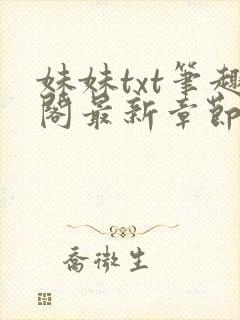 妹妹txt筆趣
閣最新章節
喬微生